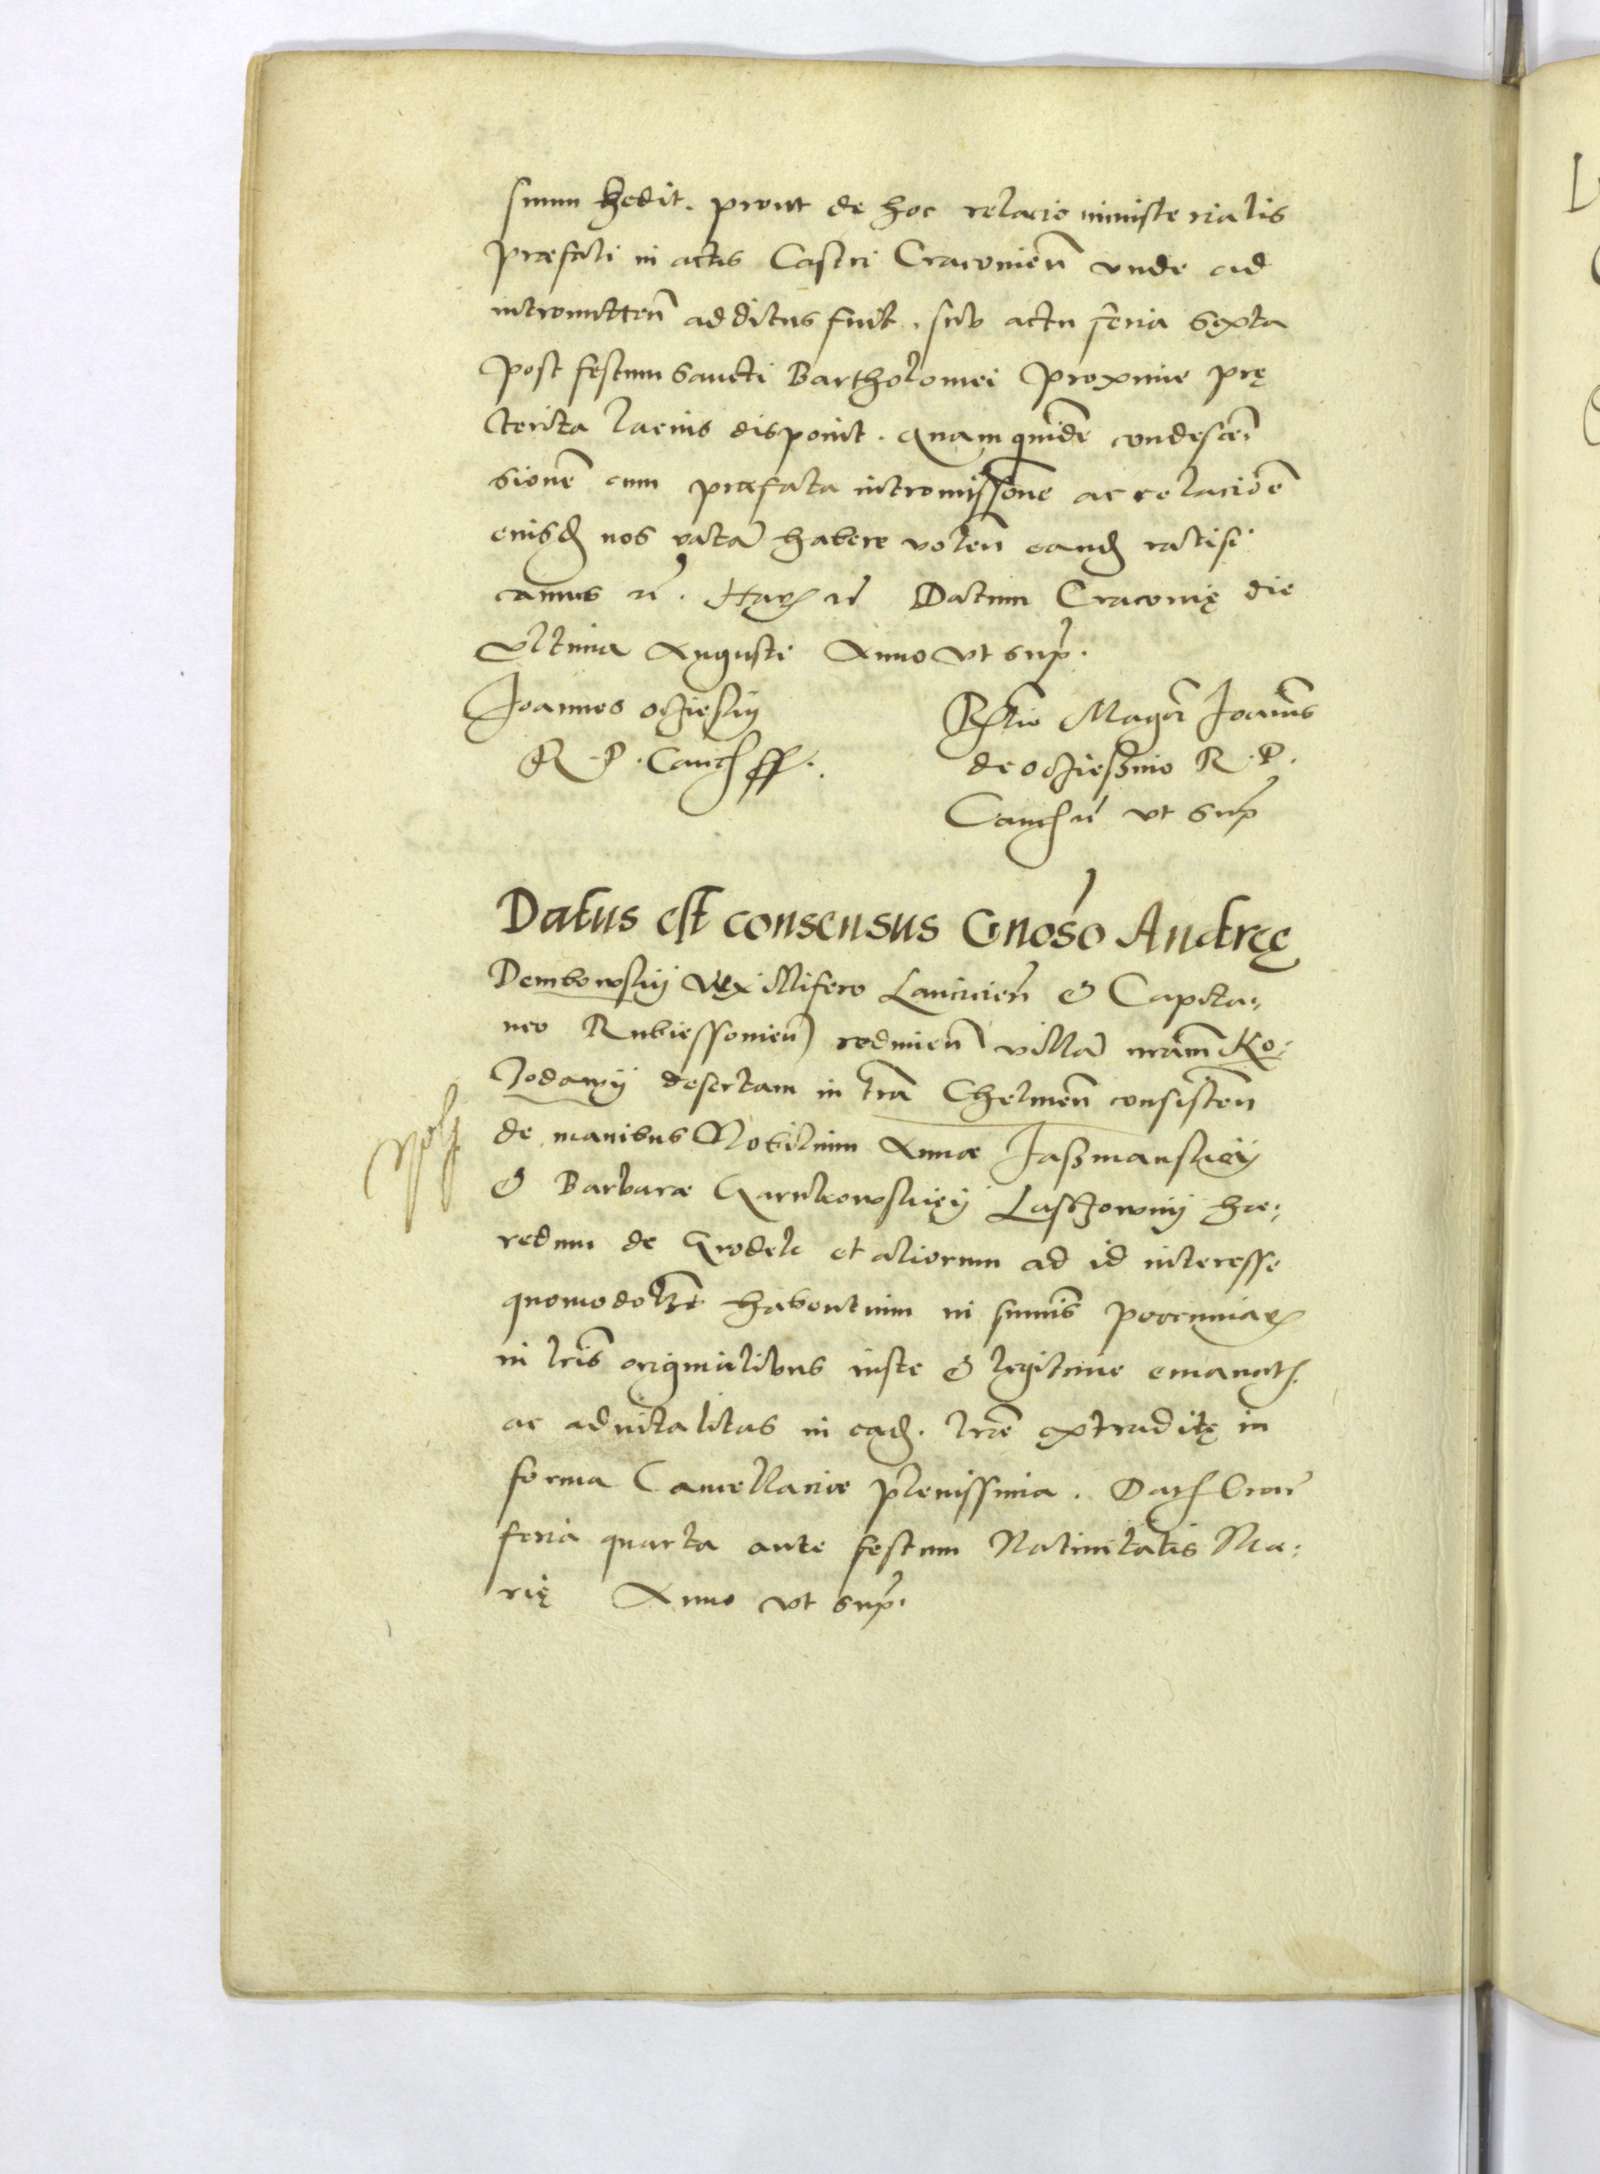 suum hedit. prout de hoc relacio ministerialis
præfati in actis Castri Cracovien̄ vnde ad
intromitten̄ additus fuit. sub actu feria sexta
post festum Sancti Bartholomei proxime prę
terita lacius disponit. Quam quidē condescē:
sionē cum præfata intromissione ac relacioē
eiusd nos ratā habere volen̄ eand ratifi
camus &c. Har &c Datum Cracovię die
Vltima Augusti Anno vt sup.
Joannes Oczieskij
R. P. Canc ss.
Rlio Magci Joannis
de Oczieschino R. P.
Canc &c vt sup
Datus est consensus Gnoso Andreę
Dembowskij Vexillifero Lancicien̄ & Capita:
neo Rubiessovien̄ redimen̄ villā nram Ko:
lodawij desertam in tra Chelmen̄ consisten̄
de manibus Nobilium Annæ Jasmanskieij
& Barbaræ Garnkowskieij Lasczownij hæ:
redum de Grodek et aliorum ad id interesse
quomodolibet habentium in summis pecuniar
in lris originalibus iuste & legitime emanat.
ac advitalitas in ead. lræ extraditę in
forma Cancellariæ plenissima. Dat Crac
feria quarta ante festum Nativitatis Ma:
rię Anno vt sup.